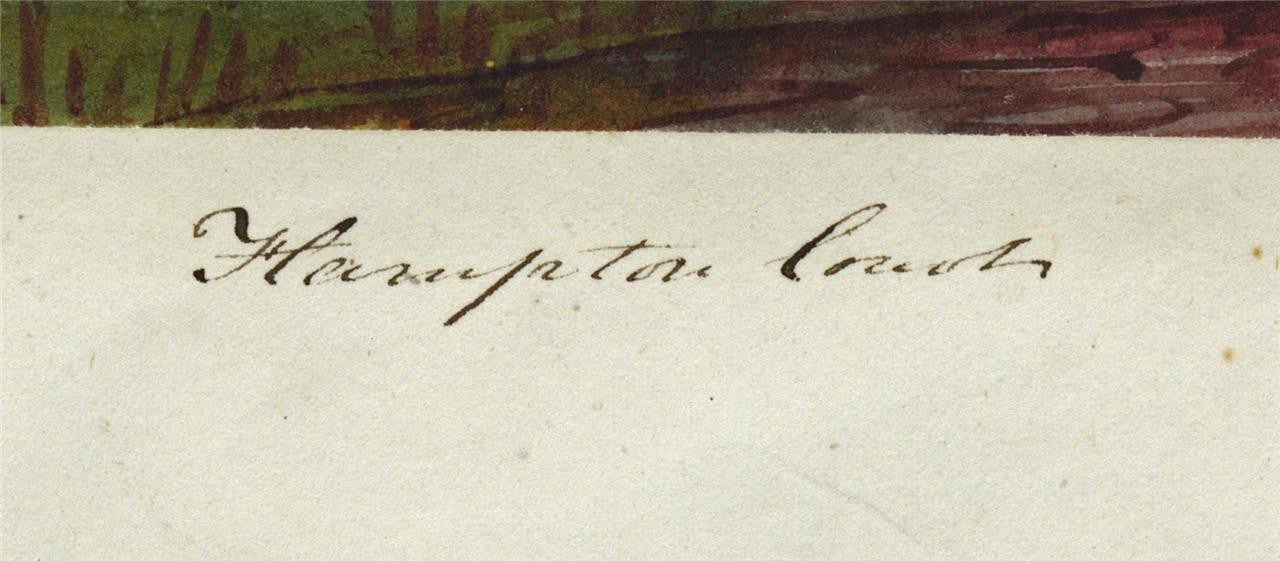 Hampton Court